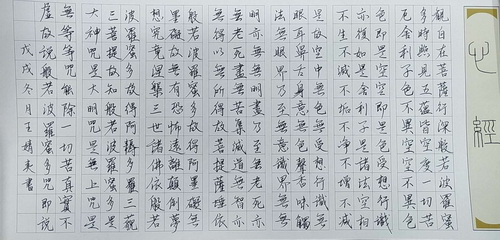 心經
觀自在菩薩行深般若波羅蜜
多時照見五蘊皆空度一切苦
厄舍利子色不異空空不異色
色即是空空即是色受想行識
亦復如是舍利子是諸法空相
不生不滅不垢不淨不增不減
是故空中無色無受想行識無
眼耳鼻舌身意無色聲香味觸
法無眼界乃至無意識界無無
明亦無無明盡乃至無老死亦
無老死盡無苦集滅道無智亦
無得以無所得故菩提薩埵依
般若波羅蜜多故心無罣礙無
罣礙故無有恐怖遠離顛倒夢
想究竟涅槃三世諸佛依般若
波羅蜜多故得阿耨多羅三藐
三菩提故知般若波羅蜜多是
大神咒是大明咒是無上咒是
無等等咒能除一切苦真實不
虛故說般若波羅蜜多咒即說
戊戌冬月王婧来書